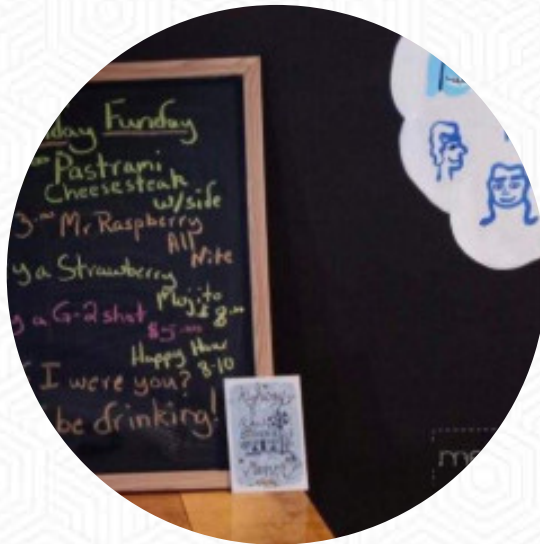 day Funday
Pastrami
Cheesesteak
w/side
3.00 Mr Raspberry
All
Nite
y a Strawberry
Mojito
$8.00
a G-2 shot
$5.00
Happy Hour
8-10
I were you?
be drinking!